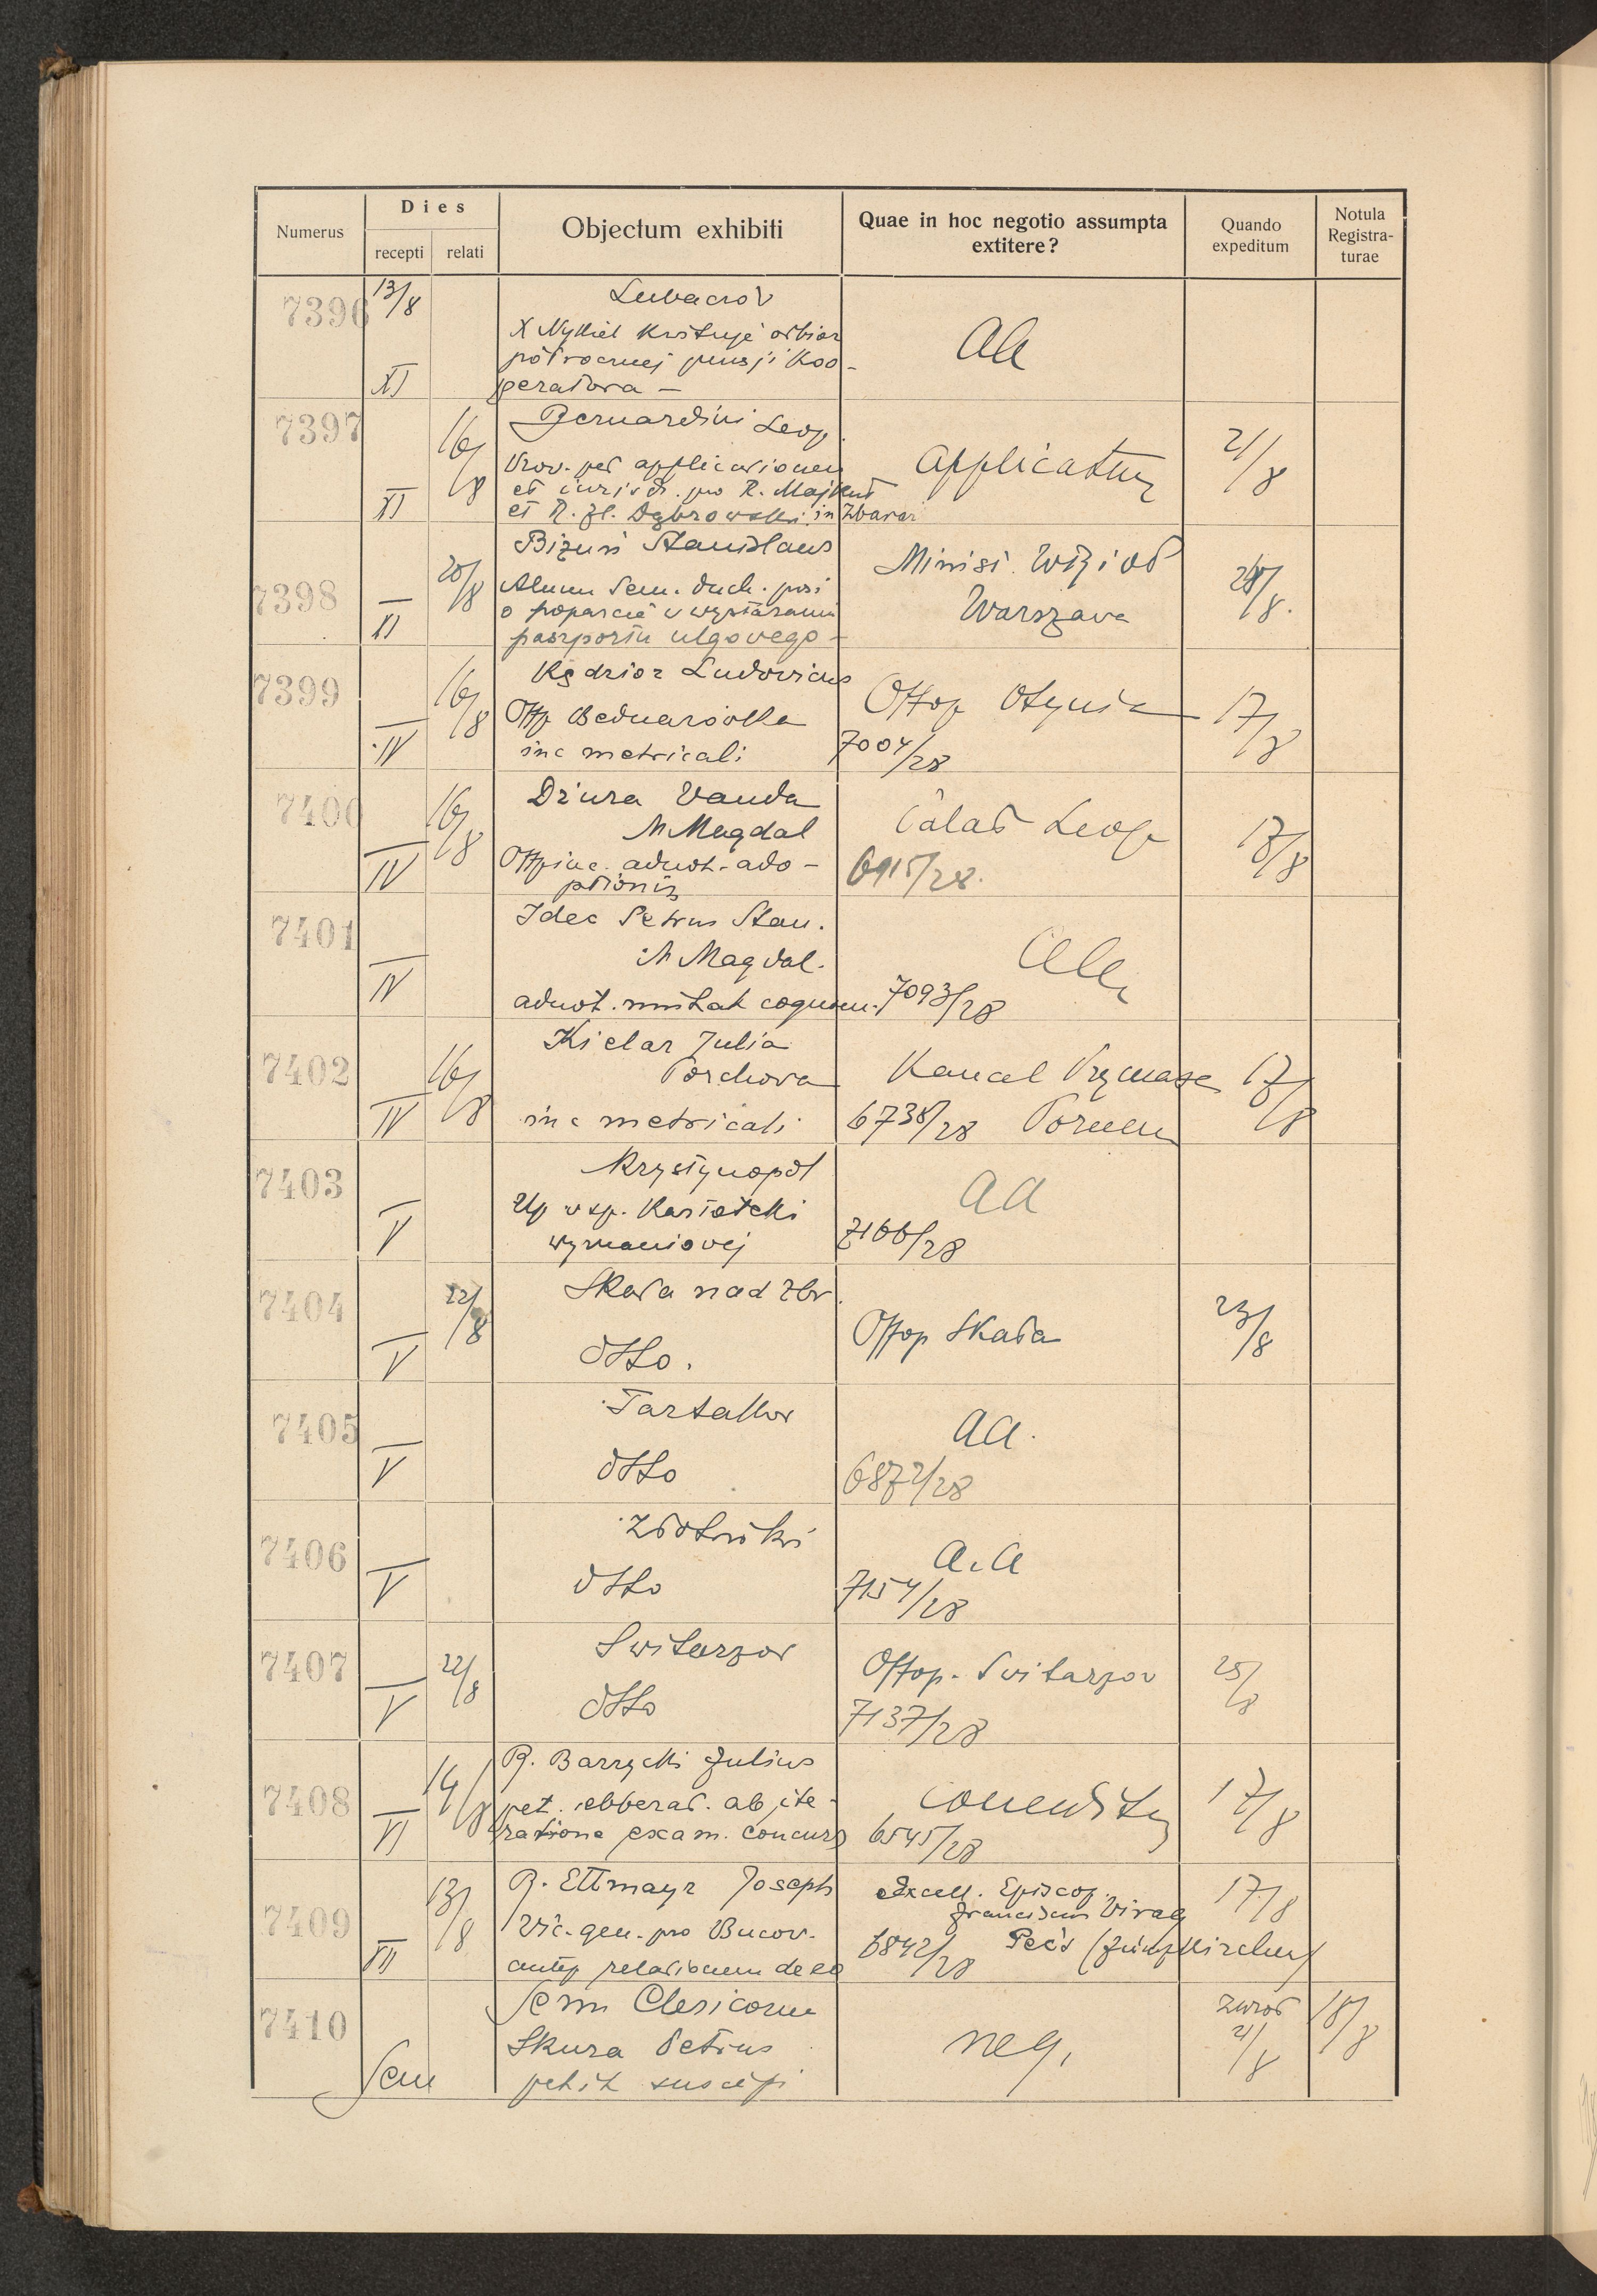 Numerus
Dies
recepti relati
Objectum exhibiti
Quae in hoc negotio assumpta extitere?
Quando expeditum
Notula Registra-turae
7396 13/8 XI
Lubaczów
X Nykiel kwituje odbiór
półrocznej pensji koo-
peratora —
Aa
7397 XI 16/8
Bernardini Leop.
Prov. pet applicationem
et iurisd. pro R. Majkut
et R. Fl. Dąbrowski in Zbaraż
Applicatur
21/8
7398 XI 20/8
Bizuń Stanislaus
Alumn Sem. duch. prosi
o poparcie w wystaraniu
paszportu ulgowego —
Minist. WRiOP
Warszawa
28/8.
7399 IV 16/8
Kędzior Ludovicus
Offp Bednarówka
in c metricali
Offop Otynia
7004/28
17/8
7400 IV 16/8
Dziura Wanda
M Magdal
Offp in c. adnot. ado-
ptionis
Palat Leop
6915/28.
17/8
7401 IV
Idec Petrus Stan.
M Magdal.
adnot. mutat cognom.
Aa
7093/28
7402 IV 16/8
Kielar Julia
Porchowa
in c metricali
Kancel Prymasa
6738/28 Poznań
17/8
7403 V
Krystynopol
Up w sp. Kartoteki
wyznaniowej
aa
7166/28
7404 V 22/8
Skała nad Zbr.
dtto.
Offop Skała
23/8
7405 V
Tartaków
dtto
aa.
6872/28
7406 V
Złotniki
dtto
a.a
7154/28
7407 V 22/8
Switarzow
dtto
Offop. Switarzow
7137/28
25/8
7408 VI 14/8
R. Barzycki Julius
pet. libberat. ab ite-
ratione exam. concurs
Conceditur
6545/28
17/8
7409 VII 13/8
R. Ettmayr Joseph
Vic. gen. pro Bucov.
relationem de eo
Excell. Episcop.
Franciscum Virag
6842/28 Peċs (Fünfkirchen)
17/8
7410 Sem
Sem Clericorum
Skura Petrus
petit suscepi
neg.
zwrot 21/8
18/8